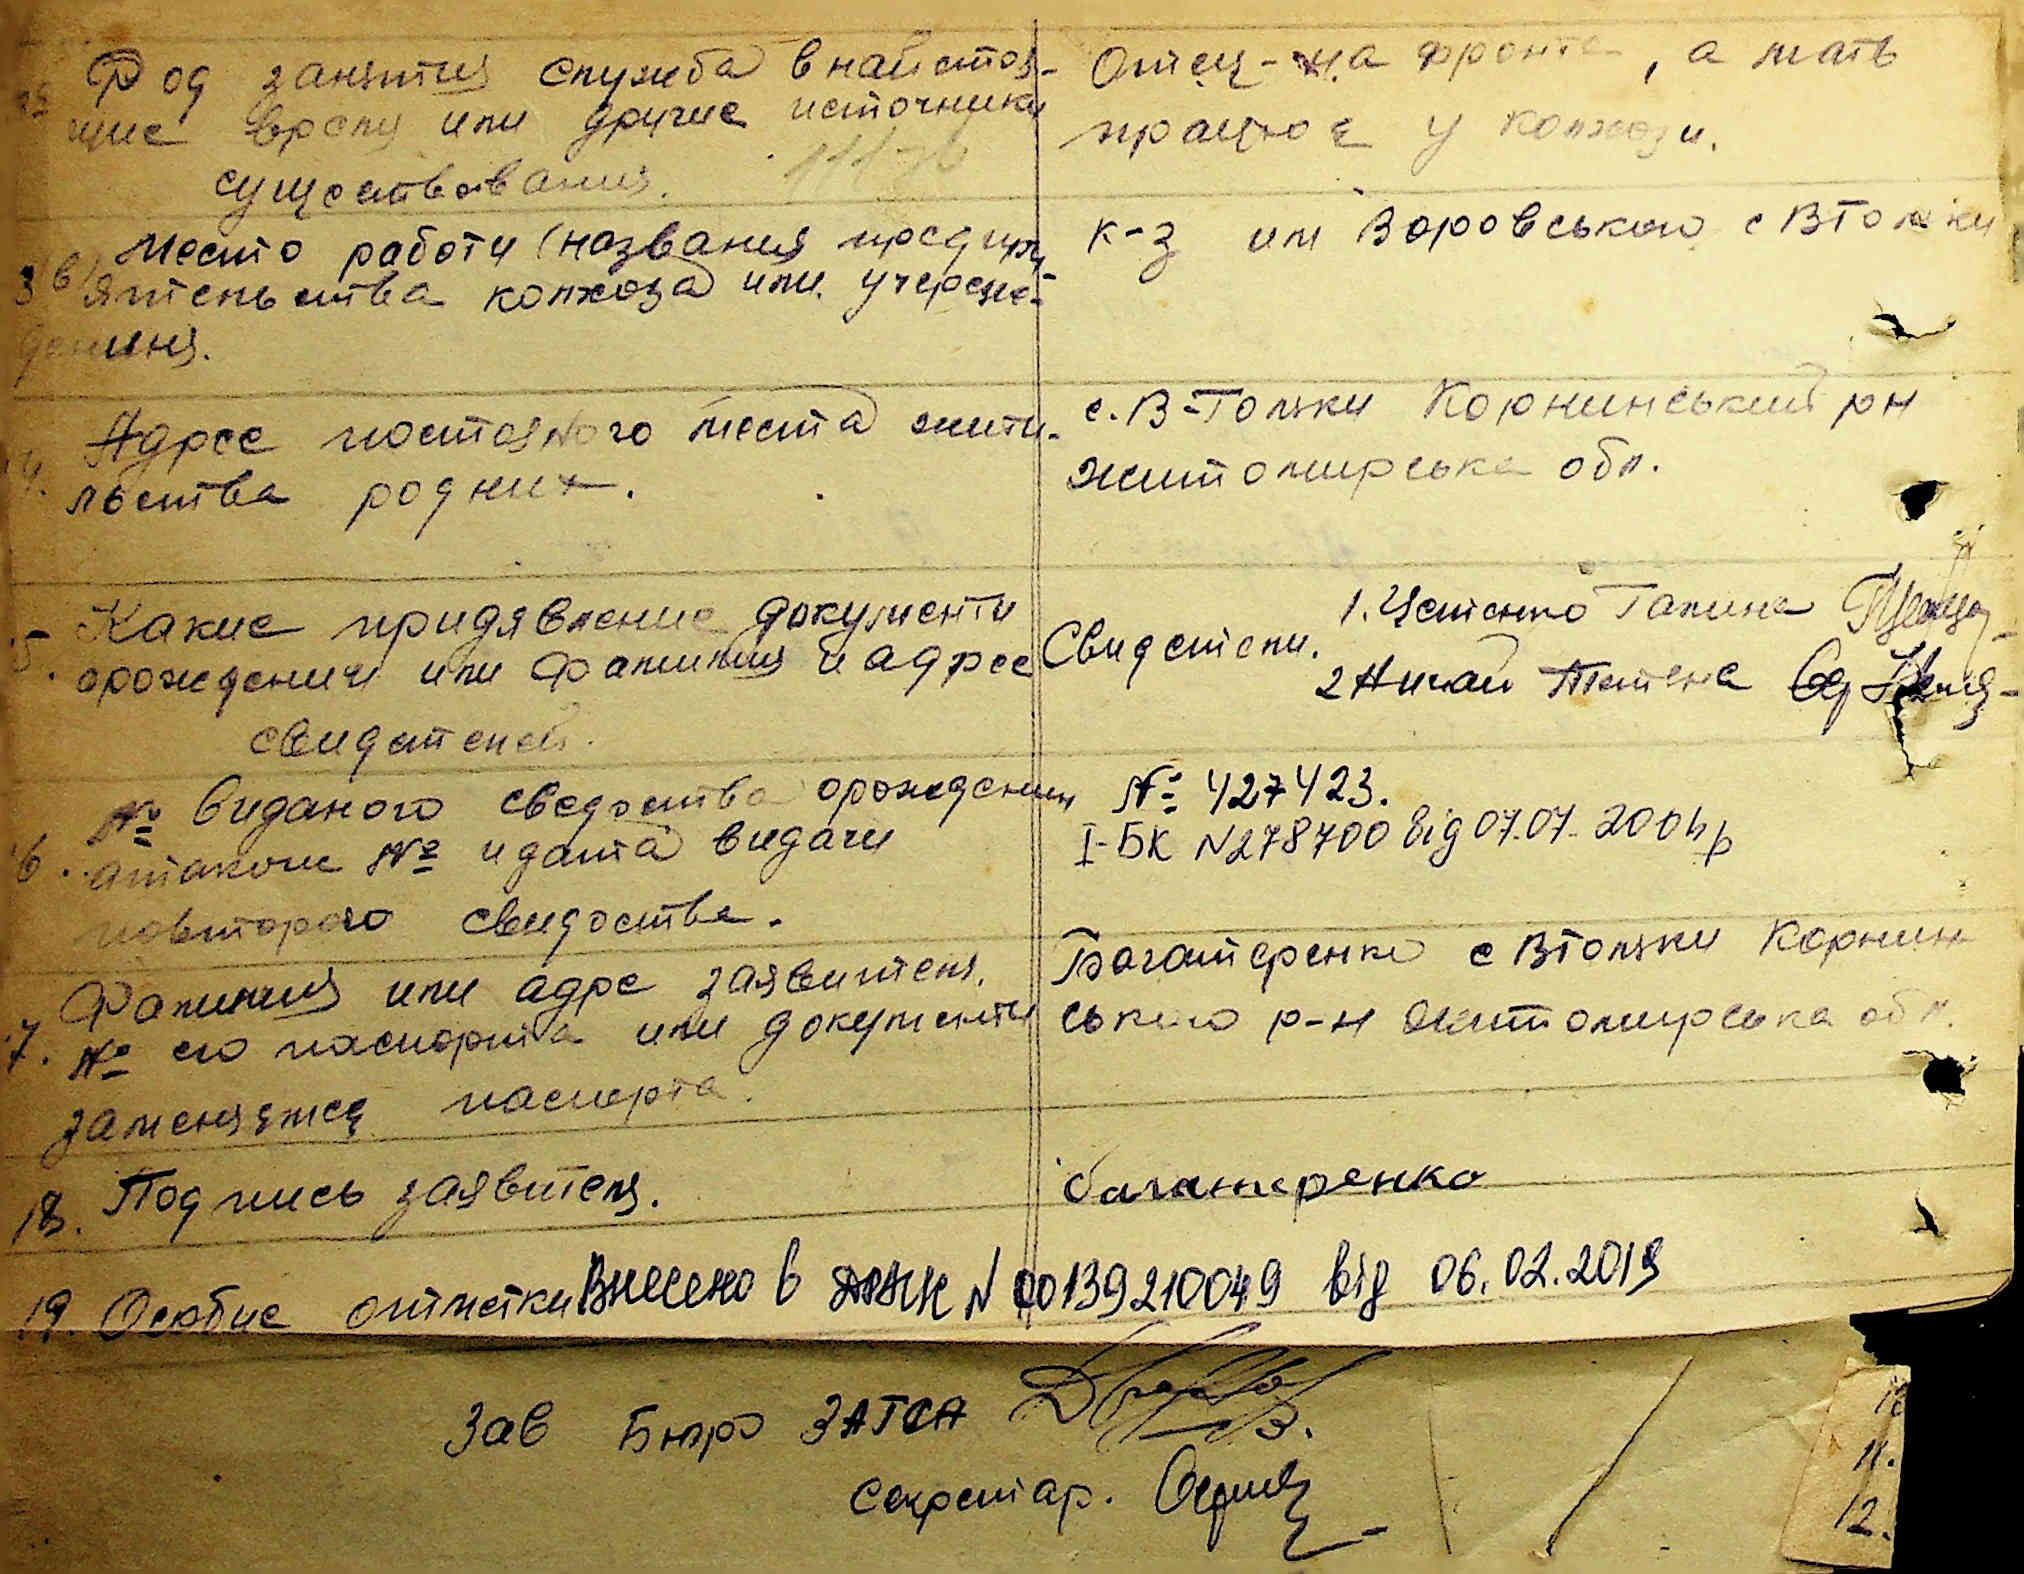 Род занятия служба внайстоя-
щие время или другие источники
существования.
Отец - на фронте, а мать
працює у колхози.
в) Место работи (названия предпри
ятельства колхоза или учереж-
дениня.
к-з им Воровського с ВТолжи
Адрес постояного места жити-
льства родних.
с. В-Толжи Корнинський рн
житомирська обл.
5. Какие придявление документи
орождении или фамилия и адрес
свидетелей.
Свидетели. 1. Галина
2
6. № виданого сведоства орождении
атакоже № идата видачи
повторого свидоства.
№ 427423.
І-БК №278700 від 07.07.2004р
7. Фамилия или адре заявителя.
№ его паспорта или документи
заменяжещ паспорта.
Багатеренко с ВТолжи Корнин
ського р-н житомирська обл.
18. Подпись заявителя.
багатеренко
19. Особие отметки Внесено в АРАЖК N 00139210049 від 06.02.2019
Зав Бюро ЗАГСА
секретар.
11.
12.